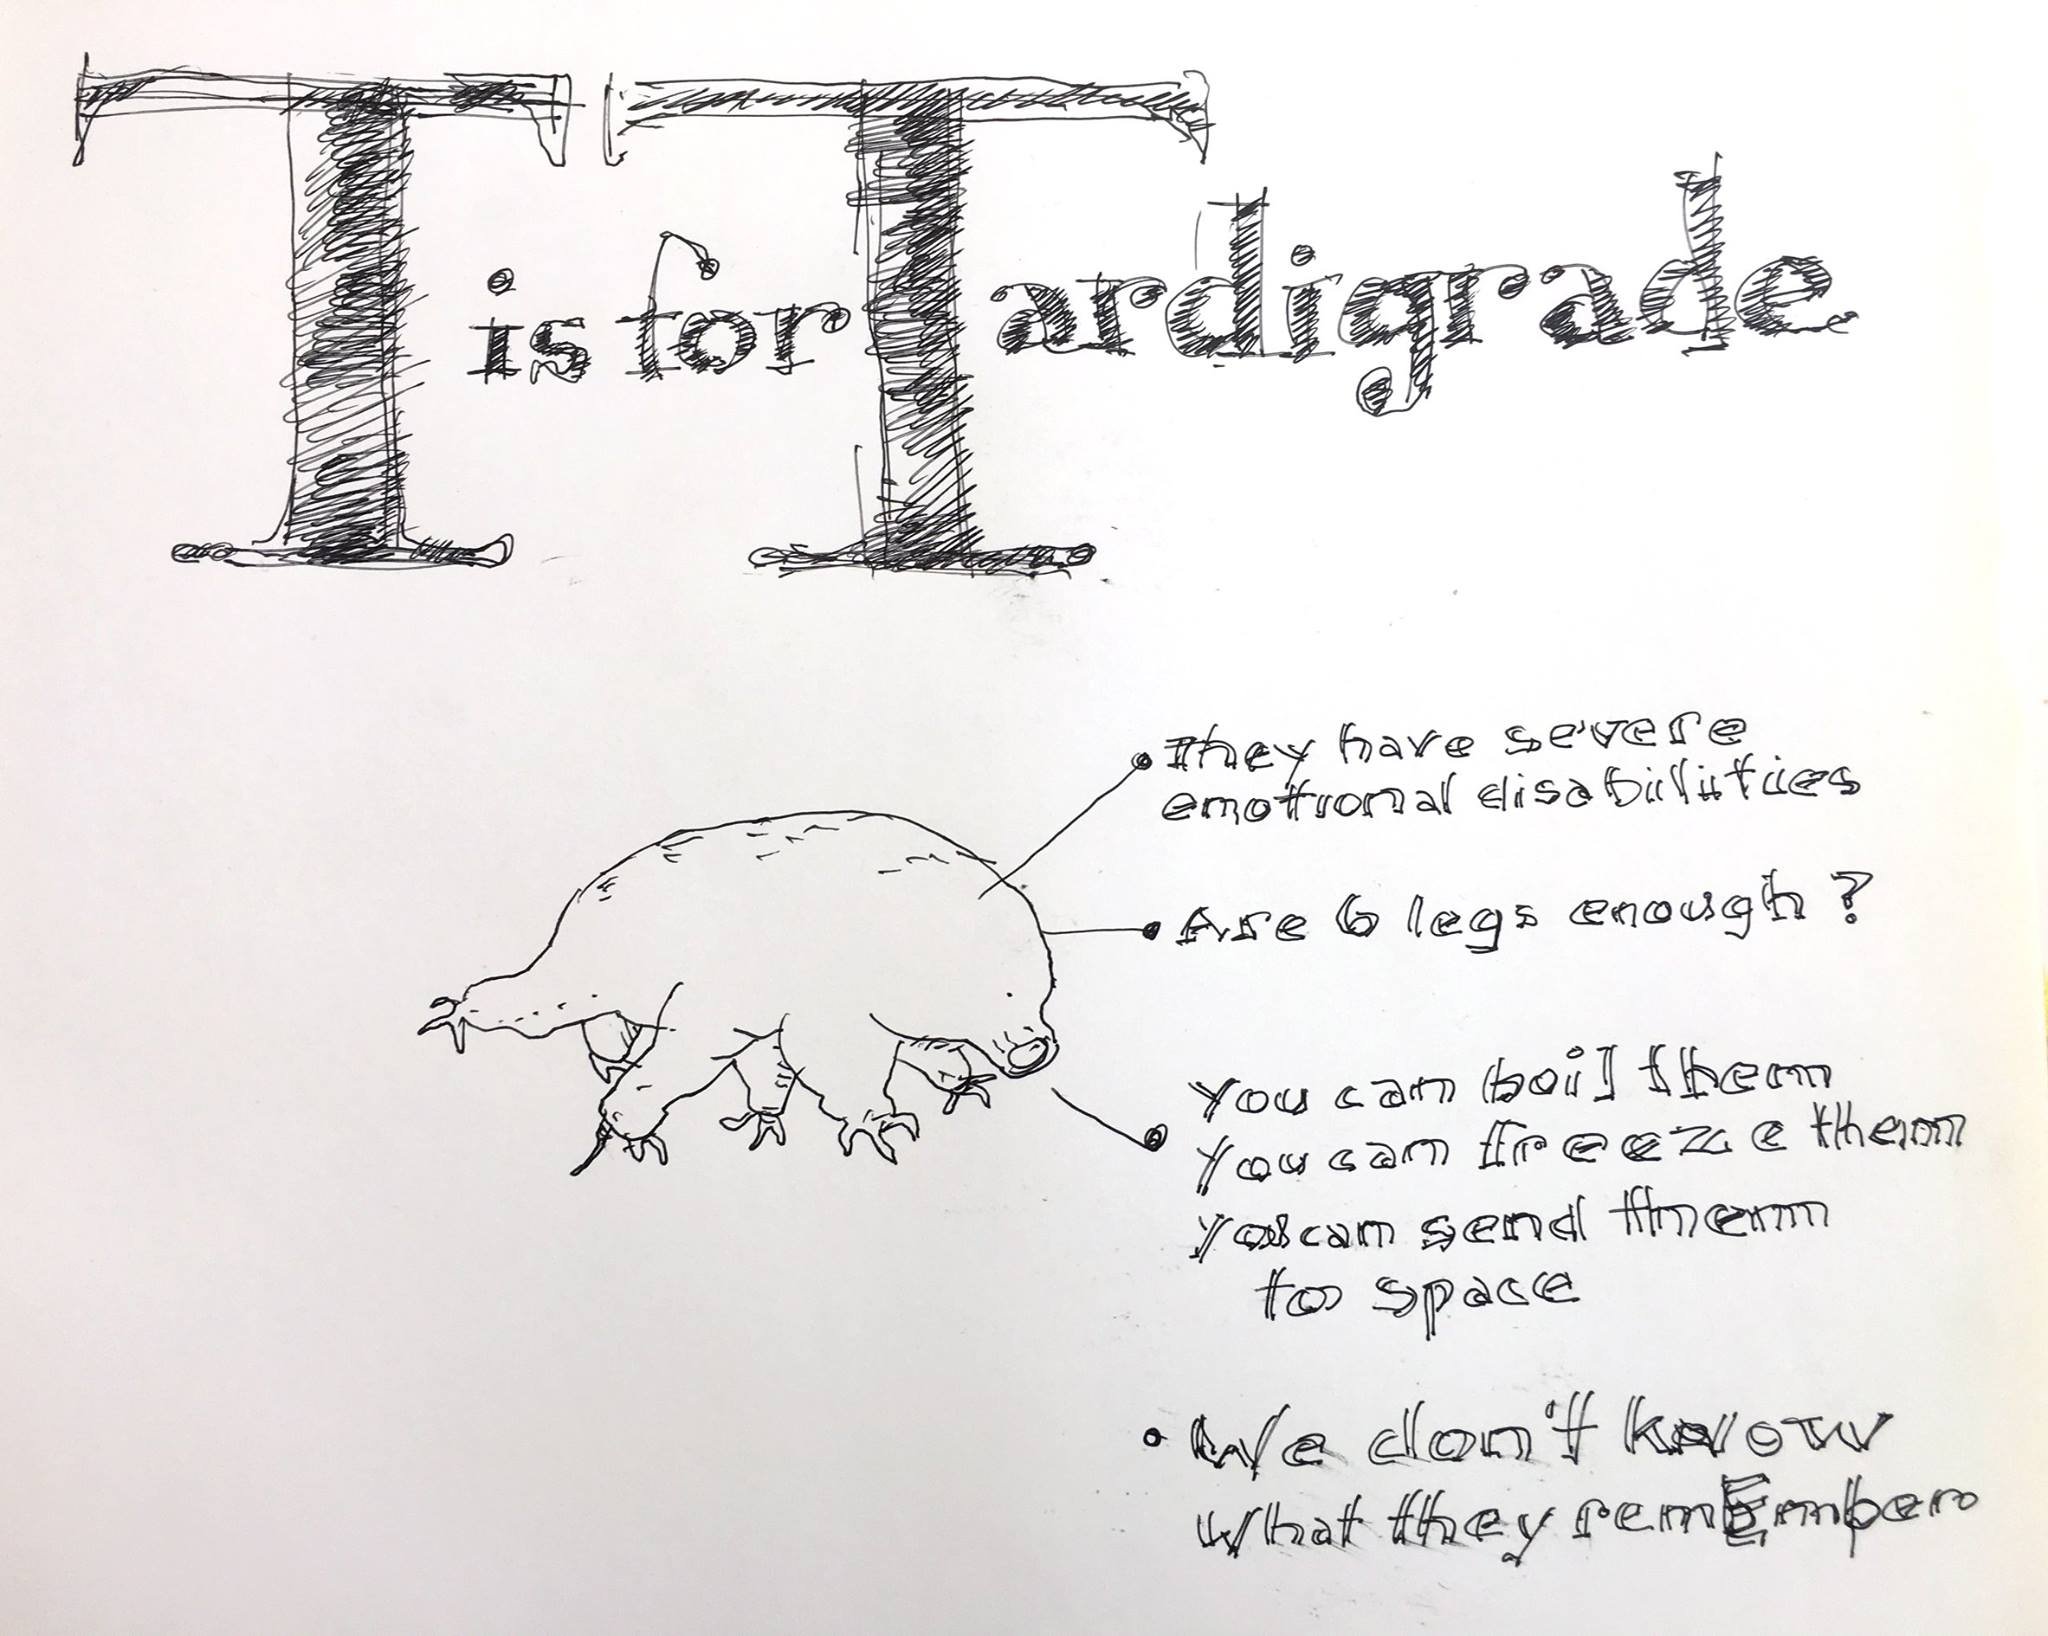 T is for Tardigrade
They have severe
emotional disabilities
Are 6 legs enough?
You can boil them
You can freeze them
You can send them
to space
We don't know
what they remEmber